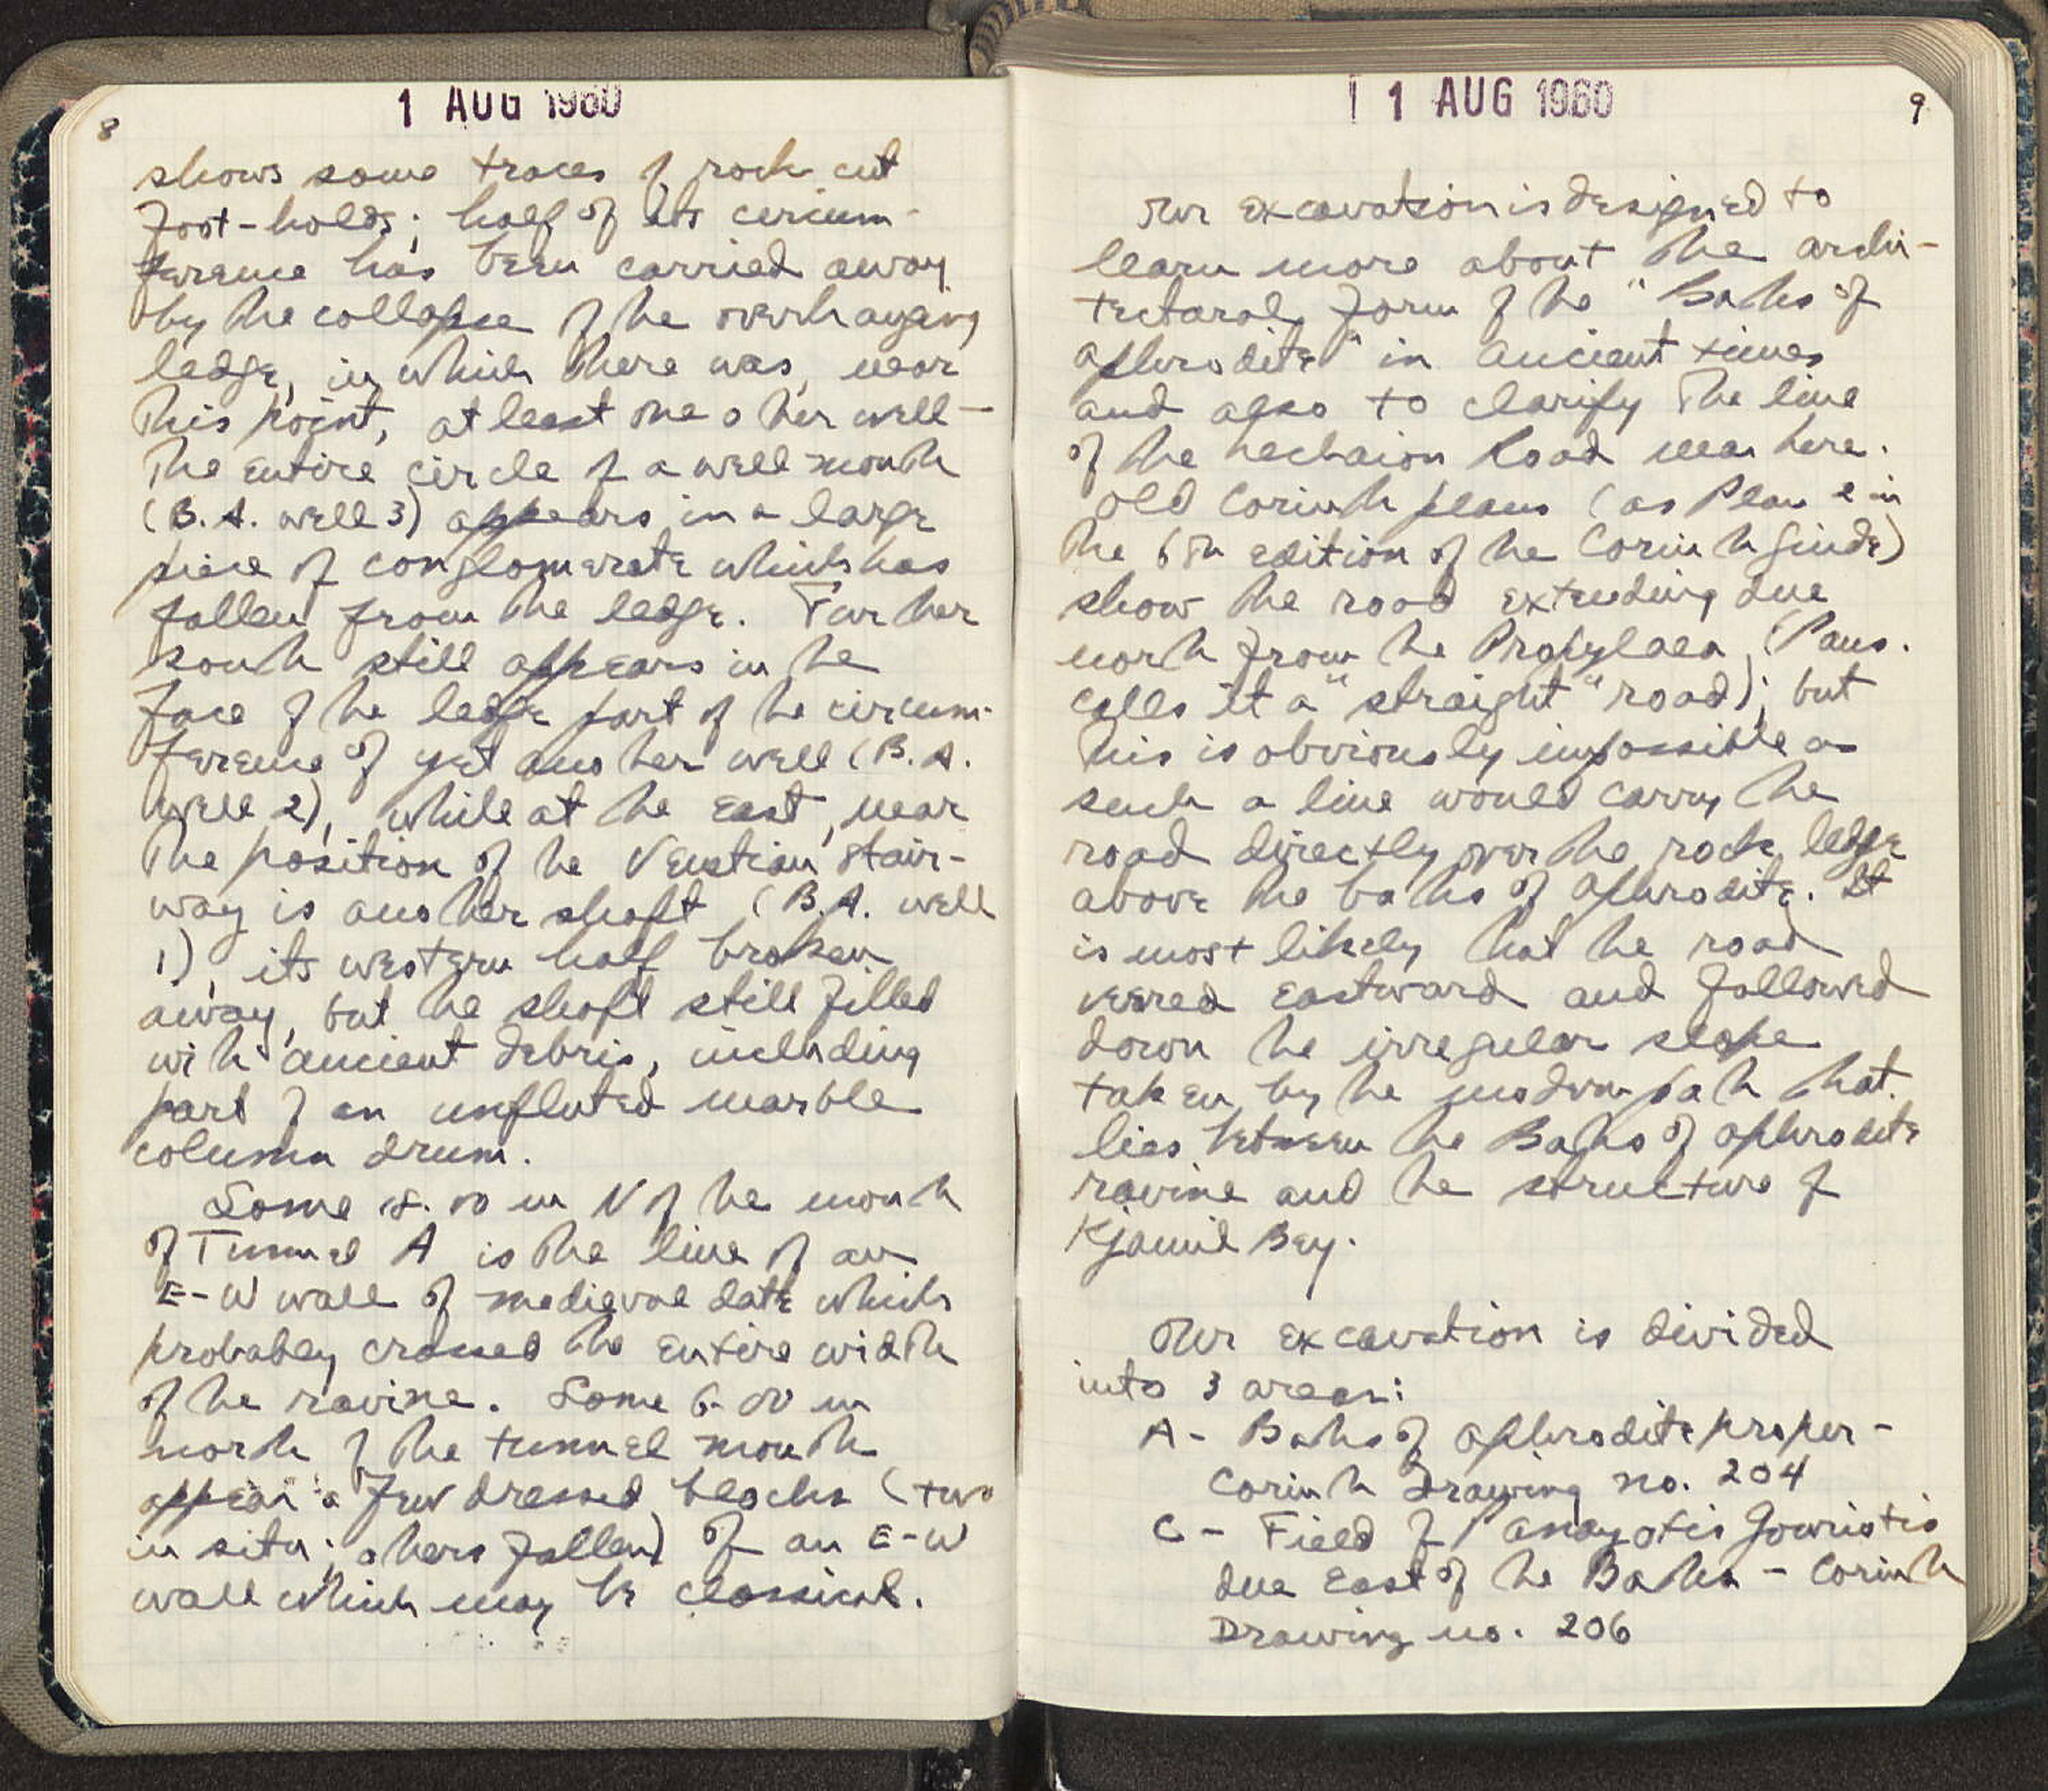 8
1 AUG 1960
shows some traces of rock cut
foot-holds; half of its circum-
ference has been carried away
by the collapse of the overhanging
ledge, in which there was, near
this point, at least one other well -
The entire circle of a well mouth
(B.A. well 3) appears in a large
piece of conglomerate which has
fallen from the ledge. Further
south still appears in the
face of the ledge part of the circum-
ference of yet another well (B.A.
well 2), while at the east, near
the position of the Venetian stair-
way is another shaft (B.A. well
1), its western half broken
away, but the shaft still filled
with ancient debris, including
part of an unfluted marble
column drum.
Some 18.00 m N of the mouth
of Tunnel A is the line of an
E-W wall of medieval date which
probably crossed the entire width
of the ravine. Some 6.00 m
north of the tunnel mouth
appear a few dressed blocks (two
in situ; others fallen) of an E-W
wall which may be classical.
1 AUG 1960
9
Our excavation is designed to
learn more about the archi-
tectural form of the "Baths of
Aphrodite" in ancient times
and also to clarify the line
of the Lechaion Road near here.
Old Corinth plans (as Plan in
the 6th edition of the Corinth Guide)
show the road extending due
north from the Propylaea (Paus.
calls it a "straight" road); but
this is obviously impossible as
such a line would carry the
road directly over the rock ledge
above the baths of Aphrodite. It
is most likely that the road
veered eastward and followed
down the irregular slope
taken by the modern path that
lies between the Baths of Aphrodite
ravine and the structure of
Kjamil Bey.
Our excavation is divided
into 3 areas:
A - Baths of Aphrodite proper -
Corinth Drawing no. 204
C - Field of Panayotis Gouristis
due East of the Baths - Corinth
Drawing no. 206